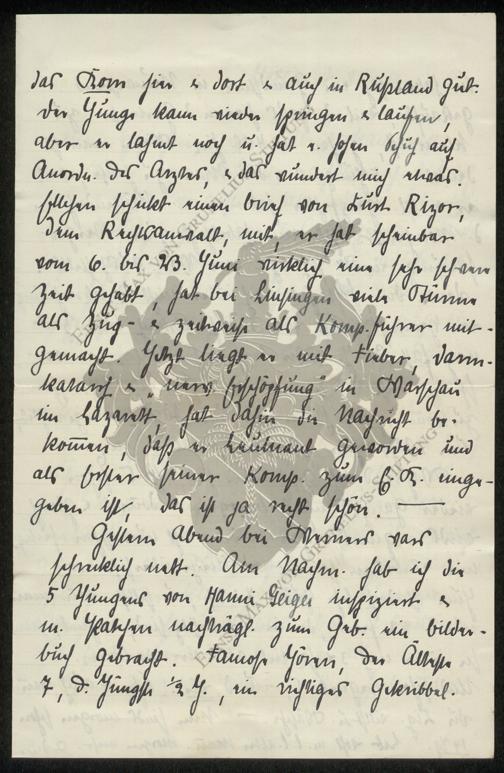 das Korn hier & dort & auch in Rußland gut.
Der Junge kann wieder springen & laufen,
aber er lahmt noch u. hat e. hohen Schuh auf
Anordn. des Arztes, & das wundert mich etwas.
schickt einen brief von Kurt Rizor,
dem Rechtsanwalt, mit, er hat scheinbar
vom 6. bis 23. Juni wirklich eine sehr schwere
Zeit gehabt, hat bei Linsingen viele Stürme
als Zug- & zeitweise als Komp. führer mit-
gemacht. Jetzt liegt er mit Fieber, Darm-
katarrh & "nerv. Erschöpfung" in Warschau
im Lazarett, hat dahin die Nachricht be-
kommen, daß er Leutnant geworden und
als bester seiner Komp. zum E. K. einge-
geben ist, das ist ja recht schön. —
Gestern Abend bei Weiners wars
schrecklich nett. Am Nachm. hab ich die
5 Jungens von Hanni Geiger inspiziert &
m. Patchen nachträgl. zum Geb. ein bilder-
buch gebracht. Famose Jören, der Älteste
7, d. Jüngste ½ J., ein richtiges Gekribbel.